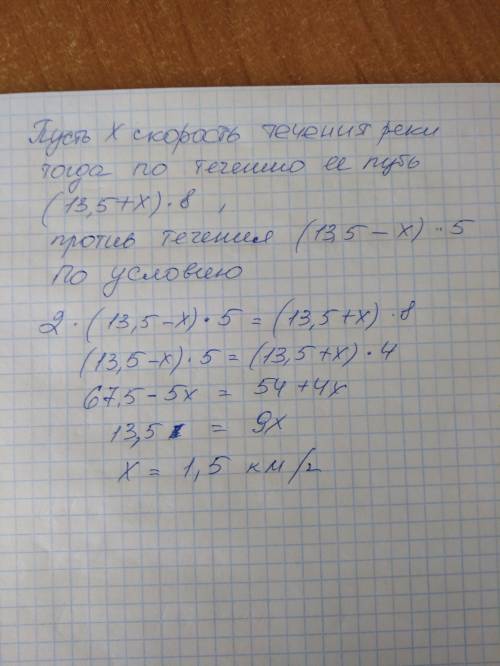 Пусть х скорость течения реки
тогда по течению ее путь
(13,5+х)·8 ,
против течения (13,5-х)·5
По условию
2·(13,5-х)·5=(13,5+х)·8
(13,5-х)·5=(13,5+х)·4
67,5-5х = 54+4х
13,5 = 9х
х = 1,5 км/ч